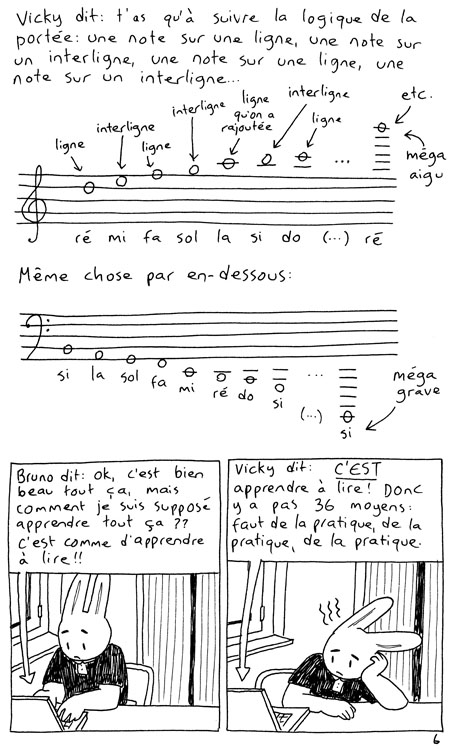 Vicky dit: t'as qu'à suivre la logique de la
portée: une note sur une ligne, une note sur
un interligne, une note sur une ligne, une
note sur un interligne...
ligne
interligne
ligne
interligne
ligne
qu'on a
rajoutée
interligne
ligne
etc.
...
méga
aigu
ré mi fa sol la si do (...) ré
Même chose par en-dessous:
si la sol fa mi ré do si ... 
(...) si
méga
grave
Bruno dit: ok, c'est bien
beau tout ça, mais
comment je suis supposé
apprendre tout ça ??
C'est comme d'apprendre
à lire!!
Vicky dit: C'EST
apprendre à lire! Donc
y a pas 36 moyens:
faut de la pratique, de la
pratique, de la pratique.
6